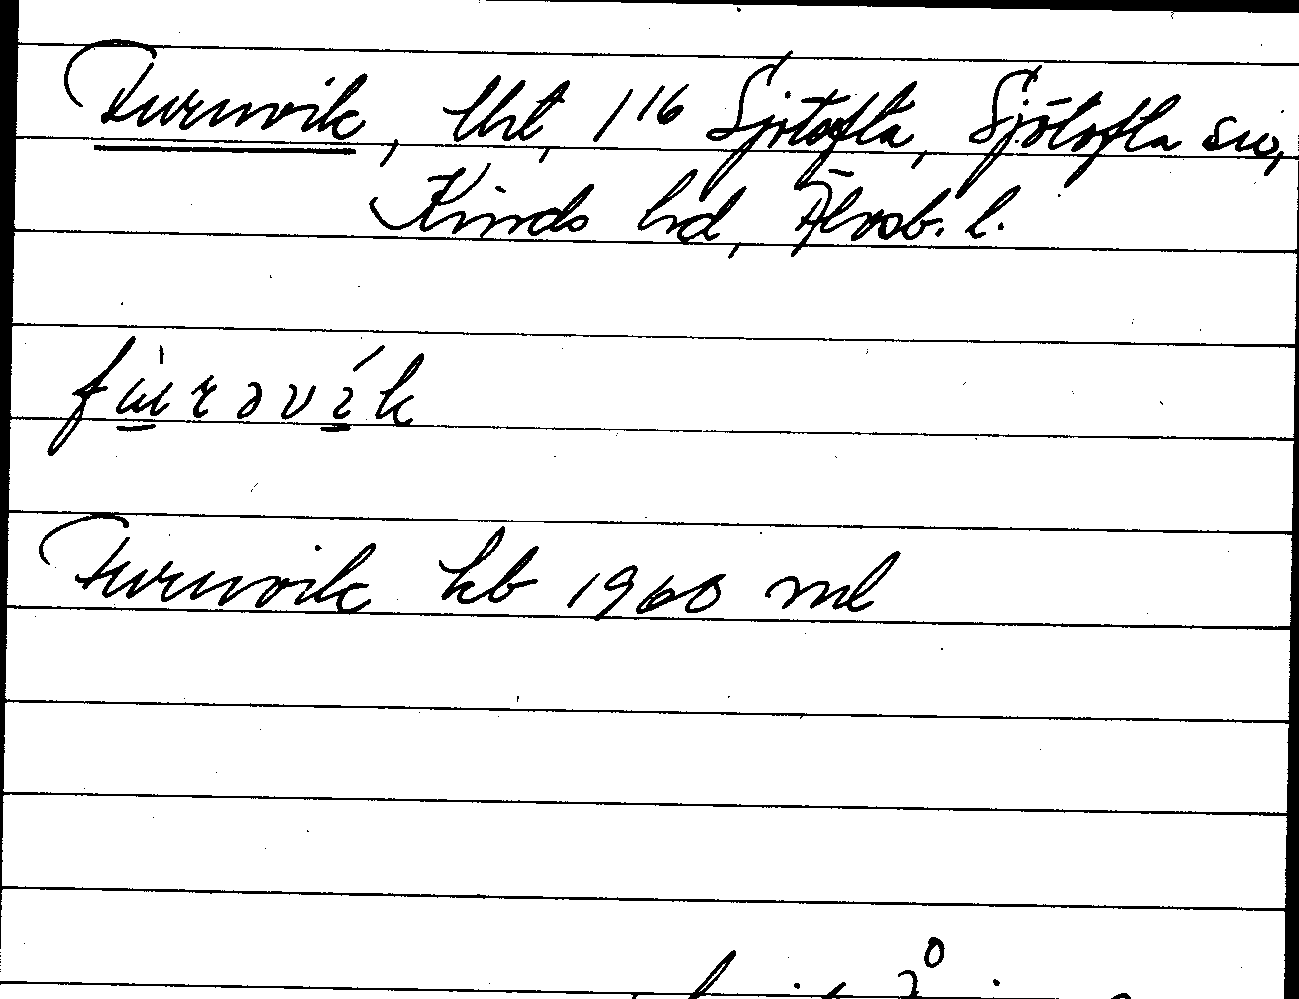 Furuvik, lht, 1¹⁶ Sjötofta, Sjötofta sn,
Kinds hd, Älvsb. l.
fùrəvík
Furuvik kb 1960 ml